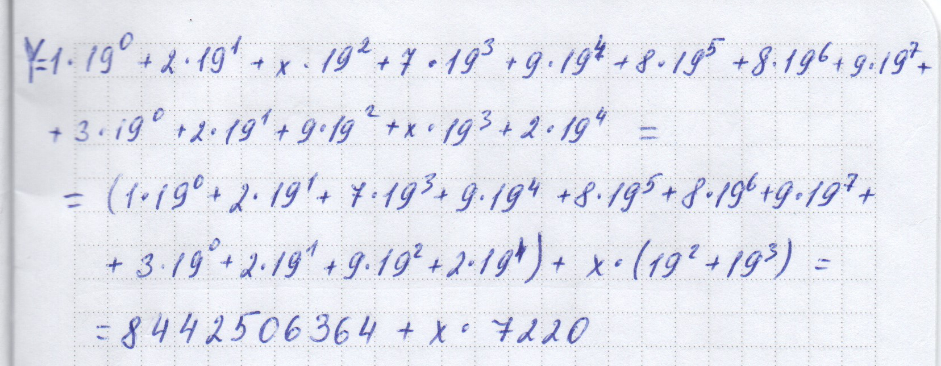 Y=1·19⁰ + 2·19¹ + x·19² + 7·19³ + 9·19⁴ + 8·19⁵ + 8·19⁶ + 9·19⁷ +
+ 3·19⁰ + 2·19¹ + 9·19² + x·19³ + 2·19⁴ =
= (1·19⁰ + 2·19¹ + 7·19³ + 9·19⁴ + 8·19⁵ + 8·19⁶ + 9·19⁷ +
+ 3·19⁰ + 2·19¹ + 9·19² + 2·19⁴) + x·(19² + 19³) =
= 8442506364 + x·7220